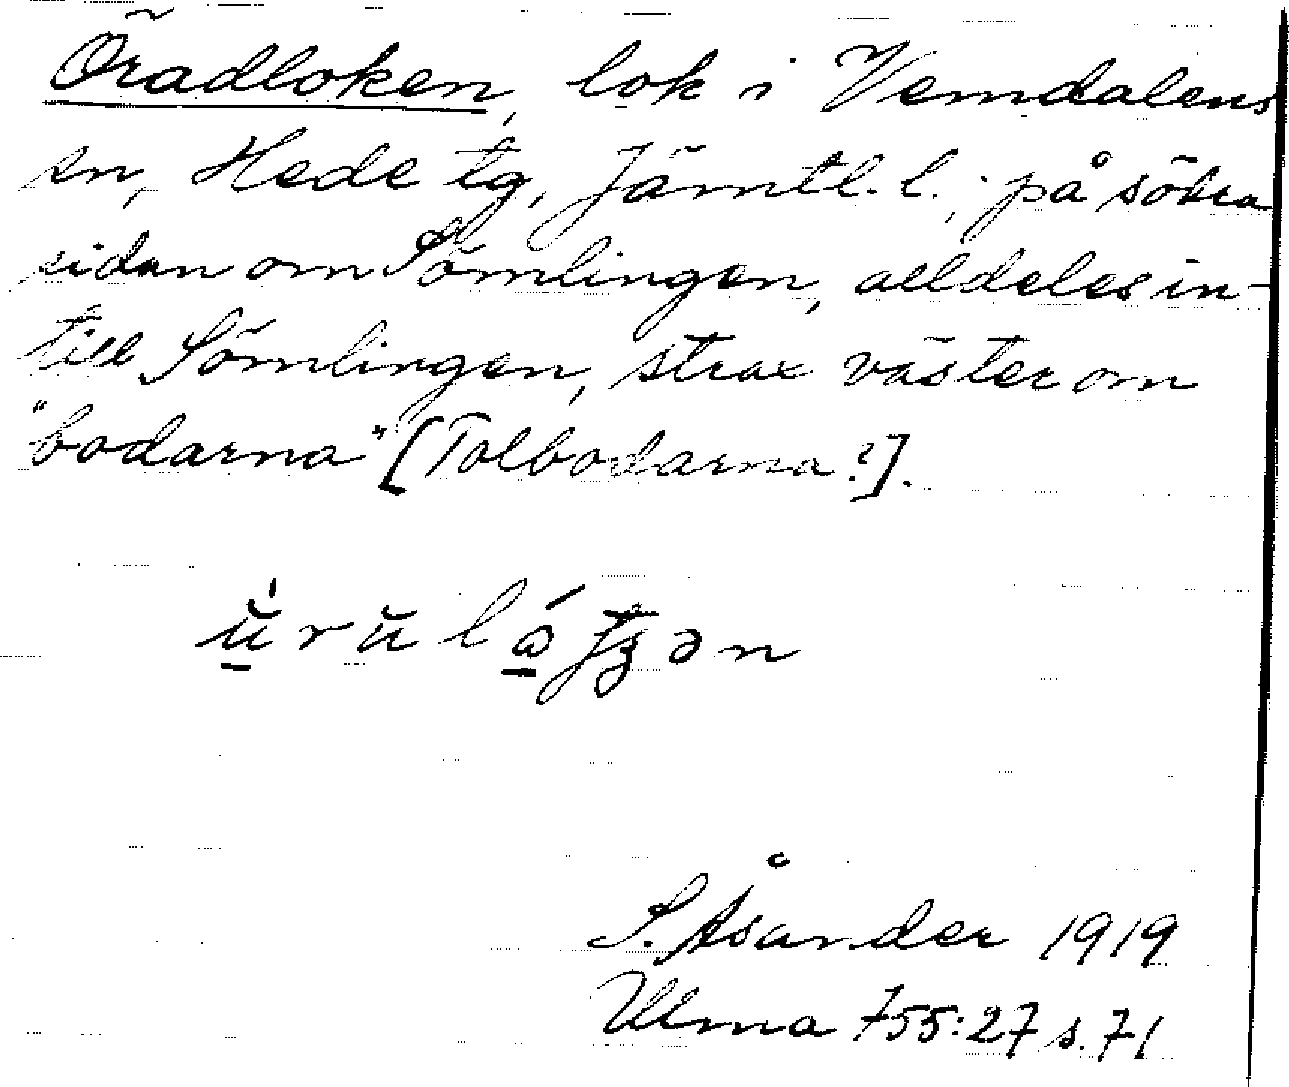 Öradloken, lok i Vemdalens
sn, Hede tg, Jämtl. l.; på södra
sidan om Sömlingen, alldeles in-
till Sömlingen, strax väster om
"bodarna" [Tolbodarna?].
S. Åsander 1919
Ulma 755:27 s. 71